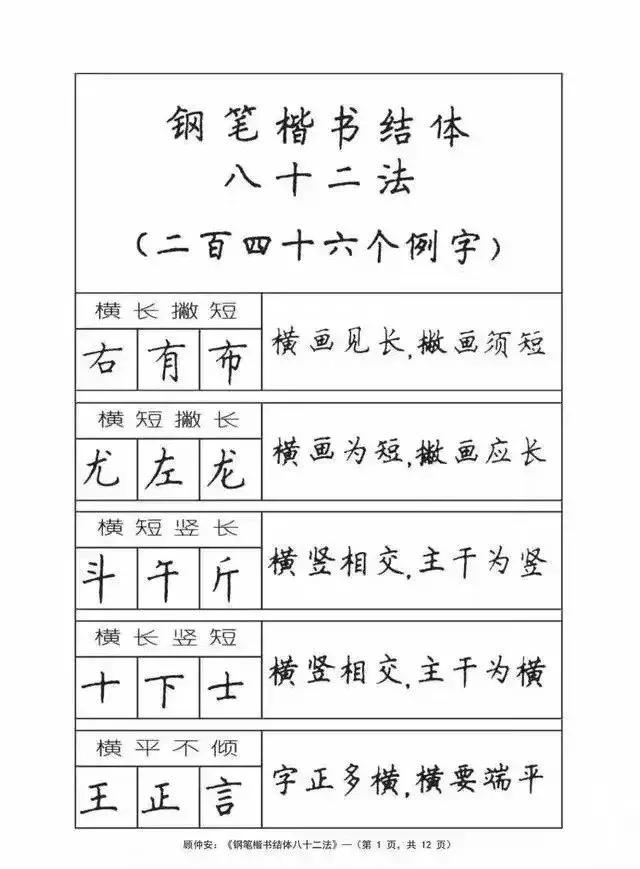 钢笔楷书结体
八十二法
（二百四十六个例字）
横长撇短
右有布
横画见长，撇画须短
横短撇长
尤左龙
横画为短，撇画应长
横短竖长
斗午斤
横竖相交，主干为竖
横长竖短
十下士
横竖相交，主干为横
横平不倾
王正言
字正多横，横要端平
顾仲安：《钢笔楷书结体八十二法》—（第 1 页，共 12 页）